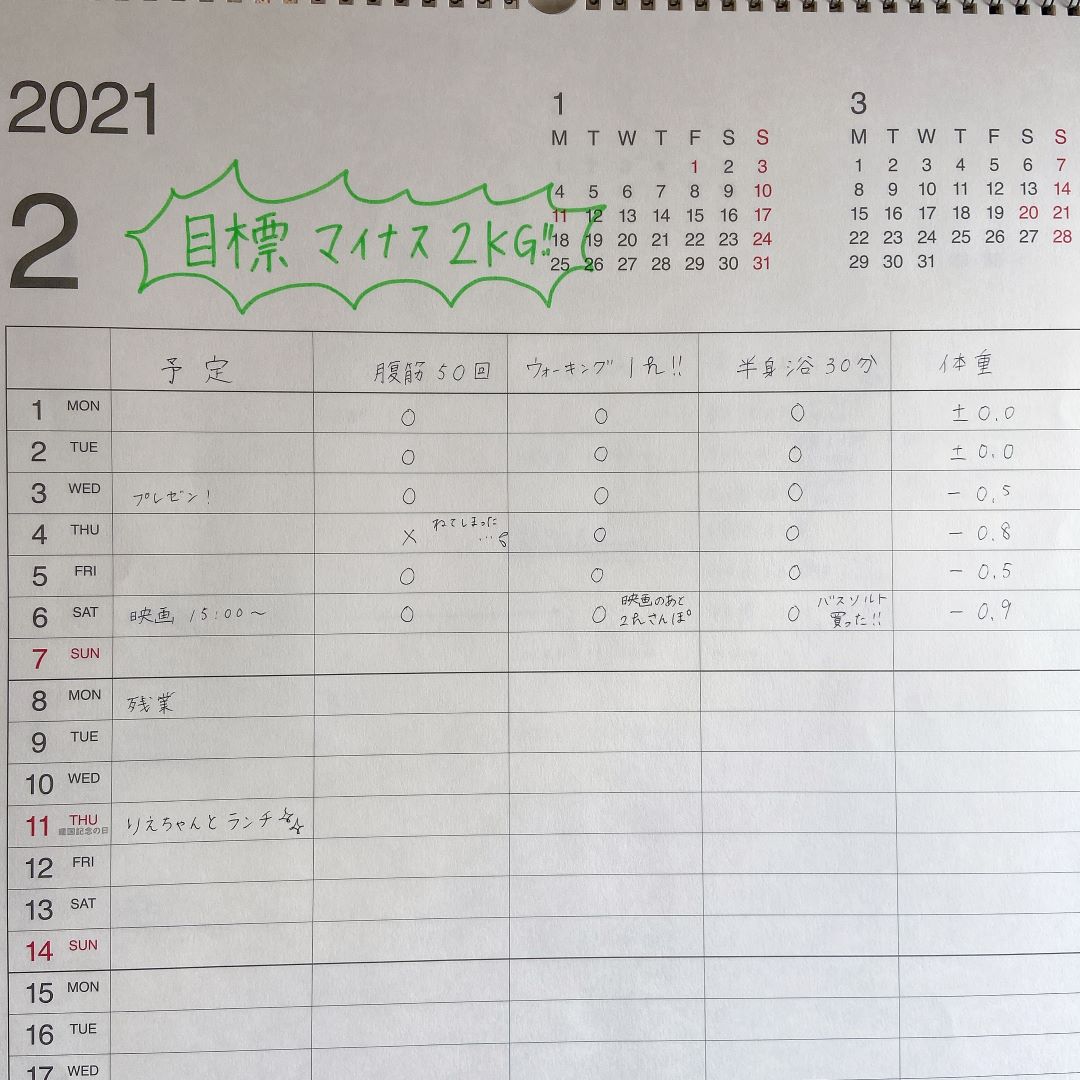 2021
2
目標 マイナス 2KG!!
1
M T W T F S S
1 2 3
4 5 6 7 8 9 10
11 12 13 14 15 16 17
18 19 20 21 22 23 24
25 26 27 28 29 30 31
3
M T W T F S S
1 2 3 4 5 6 7
8 9 10 11 12 13 14
15 16 17 18 19 20 21
22 23 24 25 26 27 28
29 30 31
予定 腹筋50回 ウォーキング 1h!! 半身浴30分 体重
1 MON ○ ○ ○ ±0.0
2 TUE ○ ○ ○ ±0.0
3 WED プレゼン! ○ ○ ○ -0.5
4 THU × ねてしまった ○ ○ -0.8
…
5 FRI ○ ○ ○ -0.5
6 SAT 映画 15:00〜 ○ ○ 映画のあと ○ バスソルト -0.9
2hさんぽ 買った!!
7 SUN
8 MON 残業
9 TUE
10 WED
11 THU りえちゃんとランチ☆☆
建国記念の日
12 FRI
13 SAT
14 SUN
15 MON
16 TUE
17 WED